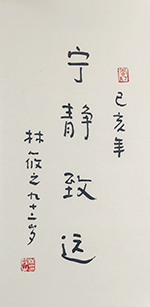 己亥年
宁静致远
林筱之九十二岁